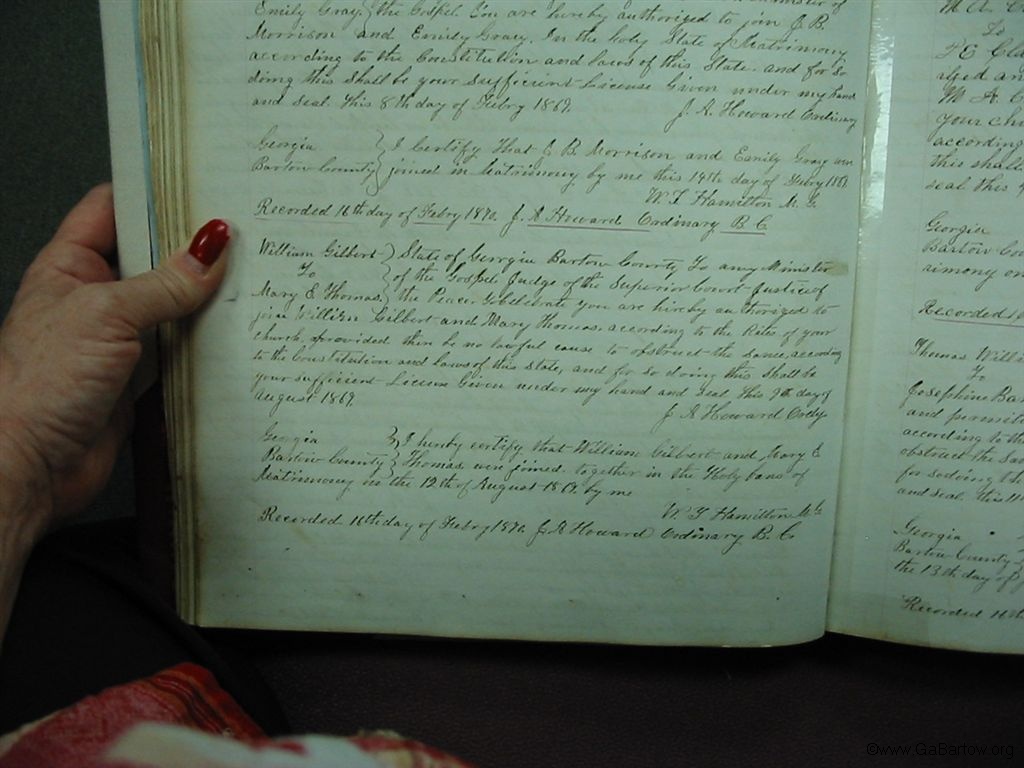 Emily Gray } the Gospel. You are hereby authorized to join J. B.
Morrison and Emily Gray. In the holy State of Matrimony
according to the Constitution and laws of this State. and for so
doing this shall be your sufficient License Given under my hand
and seal. this 8th day of Febry 1869. J. A. Howard Ordinary
Georgia } I Certify That J. B. Morrison and Emily Gray were
Bartow County } joined in Matrimony by me this 14th day of Febry 1869.
W. T. Hamilton M. G.
Recorded 16th day of Febry 1870. J. A Howard Ordinary B. C.
William Gilbert } State of Georgia Bartow County To any Minister
To } of the Gospel Judge of the Superior Court Justice of
Mary E Thomas. } the Peace to celebrate you are hereby authorized to
join William Gilbert and Mary Thomas, according to the Rites of your
church, provided there be no lawful cause to obstruct the same, according
to the Constitution and laws of this state, and for so doing this shall be
your sufficient License Given under my hand and seal this 9th day of
August 1869. J. A Howard Ordy
Georgia } I hereby certify that William Gilbert and Mary E
Bartow County } Thomas were joined together in the Holy bans of
Matrimony on the 12th of August 1869. by me
W. T. Hamilton M. G.
Recorded 16th day of Febry 1870 J. A Howard Ordinary B. C.
To
aged an
M A. C
your chu
according
this shall
seal this
Georgia
Bartow Co
rimony on
Recorded
Thomas Willi
To
Josephine Ba
and permit
according to th
obstruct the sa
for so doing th
and seal. this 11
Georgia
Bartow County
the 13th day of
Recorded 16th
©www.GaBartow.org